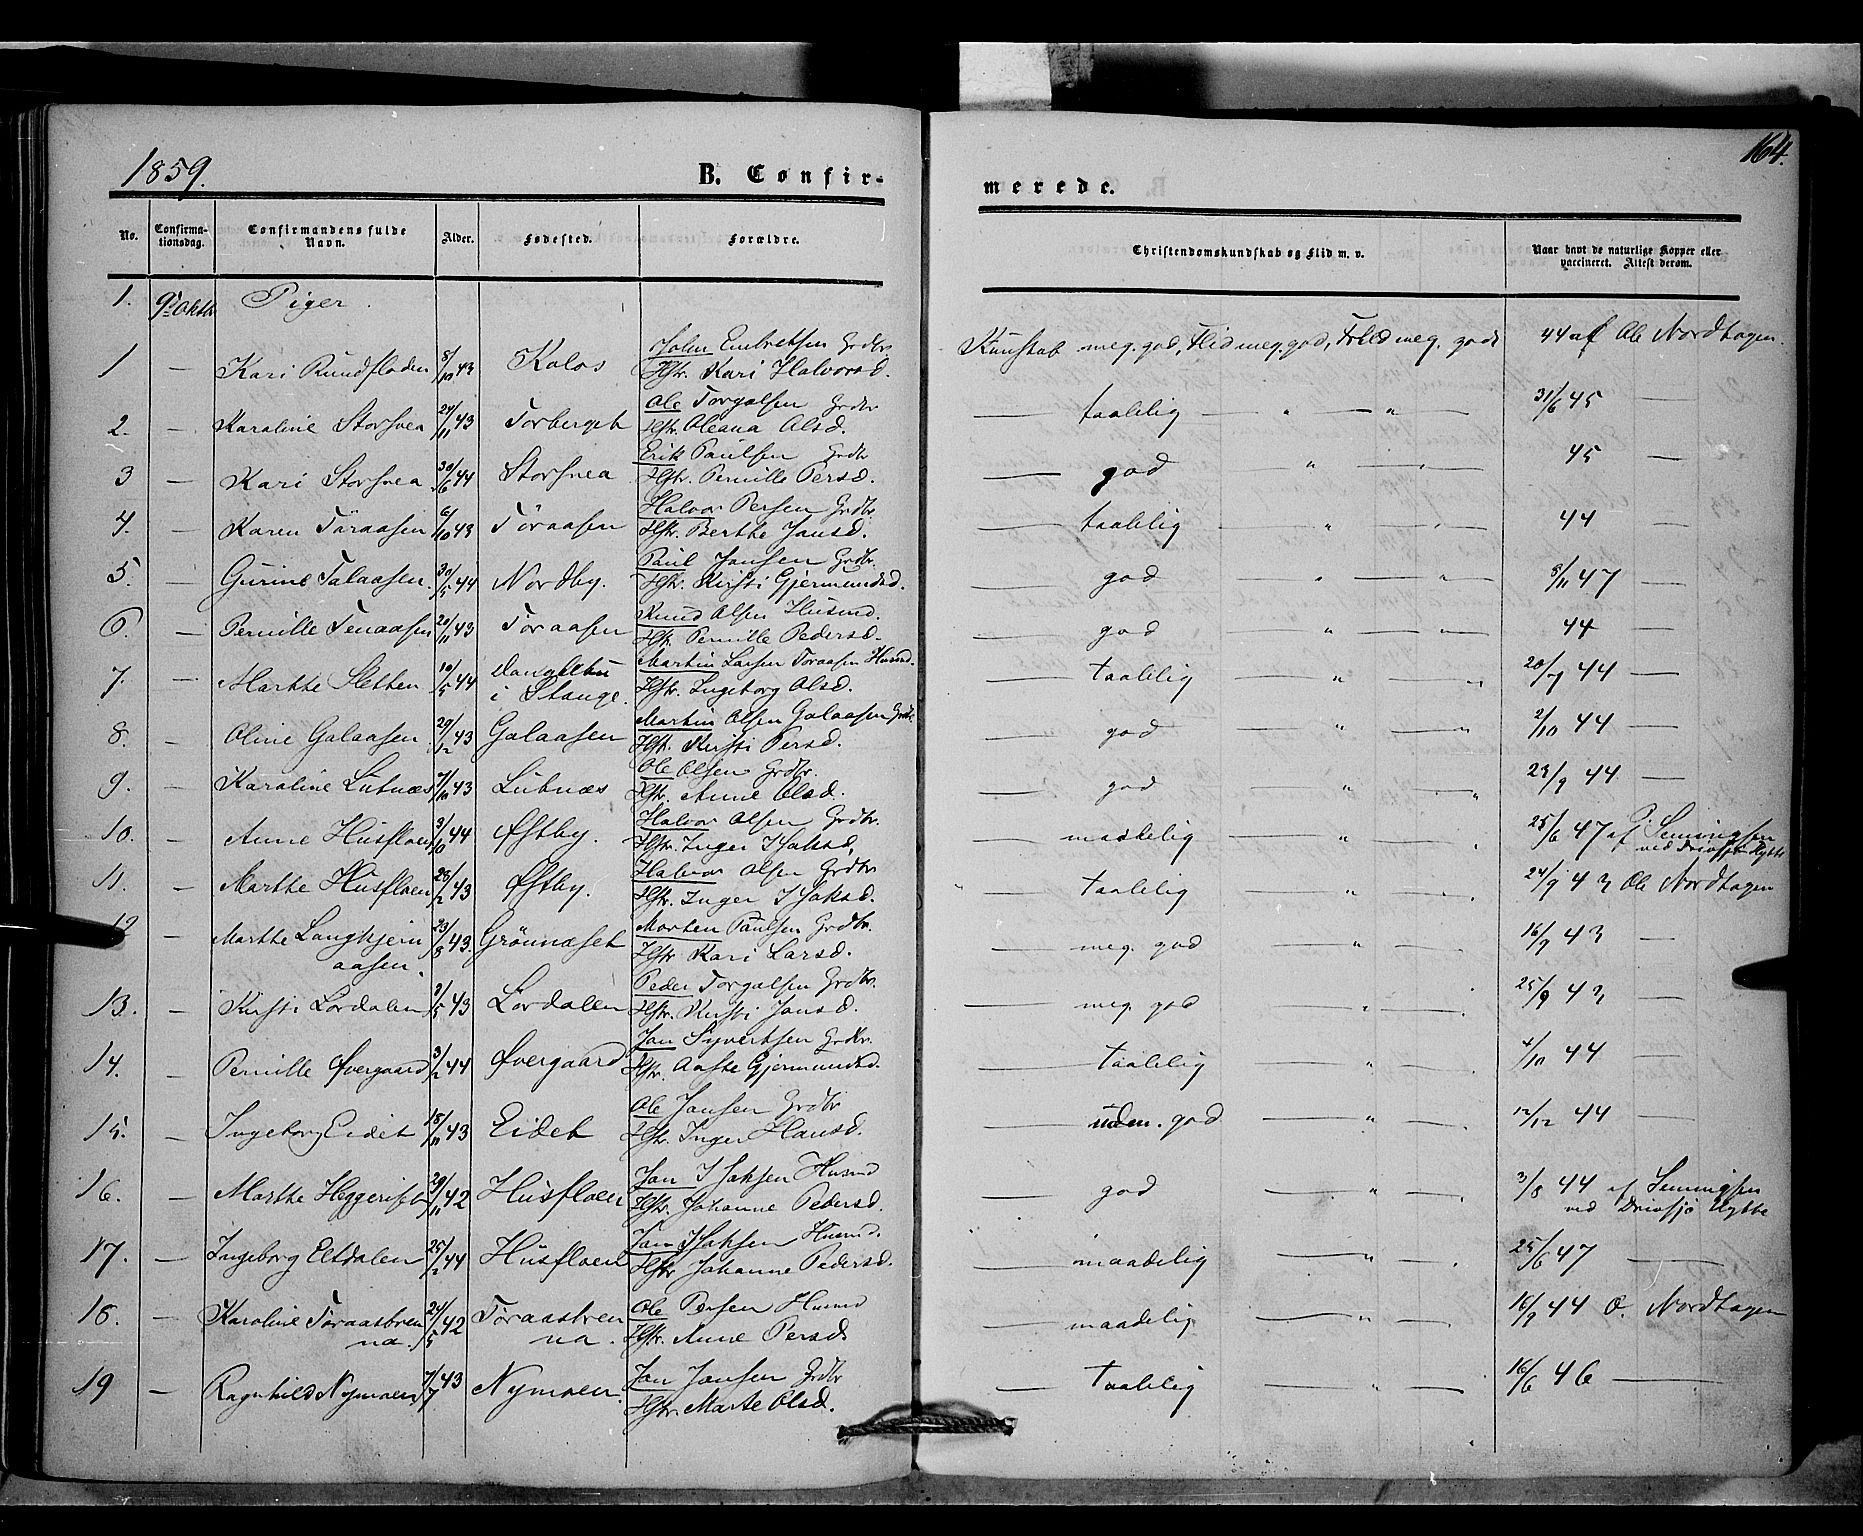 1859.
B. Confir-
merede.
164.
No. Confirma-tionsdag. Confirmandens fulde Navn. Alder. Fødested. Forældre. Christendomskundskab og Flid m. v. Naar havt de naturlige Kopper eller vaccineret. Attest derom.
1. 9de Oktbr Piger.
1 Kari Rundfloden 8/10 43 Kolos John Embretsen Grdbr Hstr. Kari Halvorsd. Kunskab meg. god, Flid meg. god, Forhld meg. godt 44 af Ole Nordhagen.
2. — Karoline Storsvea 24/11 43 Torberget Ole Torgalsen Grdbr Hstr. Oleana Olsd. — taalelig — " — " — 31/6 45 —
3 — Kari Storsvea 30/6 44 Storsvea Erik Paulsen Grdbr Hstr. Pernille Persd. — god " — " — 45 —
4. — Karen Töraasen 6/10 43 Töraasen Halvor Persen Grdbr. Hstr. Berthe Jansd. — taalelig — " — " — 44 —
5. — Gurine Galaasen. 30/5 44 Nordby. Paul Jansen Grdbr. Hstr. Kirsti Gjermundsd. — god " — " — 8/11 47 —
6. — Pernille Tenaasen 20/11 43 Töraasen Knud Olsen Husmd. Hstr. Pernille Pedersd. — god — " — " — 44 —
7. — Marthe Sletten 10/5 44 i Stange. Martin Larsen Toraasen Husmd. Hstr. Ingeborg Olsd. — taalelig " — " 20/7 44 —
8. — Oline Galaasen 29/12 43 Galaasen Martin Olsen Galaasen Grdbr Hstr. Kirsti Persd. — god — " — " 2/10 44 —
9. — Karoline Lutnæs 7/10 43 Lutnæs Ole Olsen Grdbr. Hstr. Anne Olsd. — god " — " 23/9 44 —
10. — Anne Husfloen 3/10 44 Østby. Halvor Olsen Grdbr. Hstr. Inger Isaksd, — maadelig — " — 25/6 47 af P. Semmingsen ved Drevsjø Hytte
11. — Marthe Husfloen 28/2 43 Østby. Halvor Olsen Grdbr Hstr. Inger Isaksd. " taalelig — " — 24/9 43 Ole Nordhagen
12 — Marthe Langkjern aasen. 23/8 43. Grönnæset Morten Paulsen Grdbr. Hstr Kari Larsd. — meg. god " — 16/7 43 —
13. — Kirsti Lördalen 2/5 43 Lördalen Peder Torgalsen Grdbr. Hstr. Kirsti Jansd. — meg. god " — 25/9 43 —
14. — Pernille Øvergaard 3/2 44 Øvergaard Jan Syvertsen Grdbr. Hstr. Aaste Gjermundsd. — taalelig — " — 4/10 44 —
15. — Ingeborg Eidet 18/11 43 Eidet Ole Jansen Grdbr Hstr. Inger Hansd. — üden. god — " — 12/12 44 —
16. — Marthe Heggerist 29/11 42 Husfloen Jan Isaksen Husmd Hstr. Johanne Pedersd. — god — " — 3/8 44 af Semmingsen ved Drevsjö Hytte
17. — Ingeborg Eltdalen 25/2 44 Husfloen Jan Isaksen Husmd. Hstr. Johanne Pedersd. — maadelig — " — 25/6 47 —
18. — Karoline Töraasbren na. 24/5 42 Töraasbren na. Ole Persen Husmd Hstr. Anne Persd. — maadelig — " — 16/7 44 O. Nordhagen
19 — Ragnhild Nymoen 7/7 43 Nymoen Jan Jansen Grdbr Hstr. Marte Olsd. — taalelig — " — 16/6 46 —